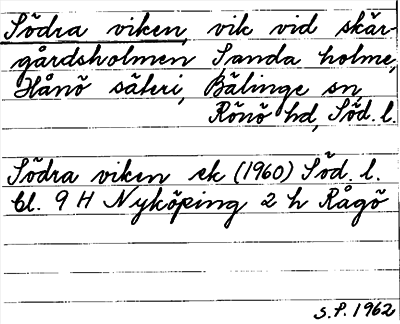 Södra viken, vik vid skär-
gårdsholmen Sanda holme,
Hånö säteri, Bälinge sn,
Rönö hd, Söd. l.
Södra viken ek (1960) Söd. l.
bl. 9 H Nyköping 2 h Rågö
S.P. 1962